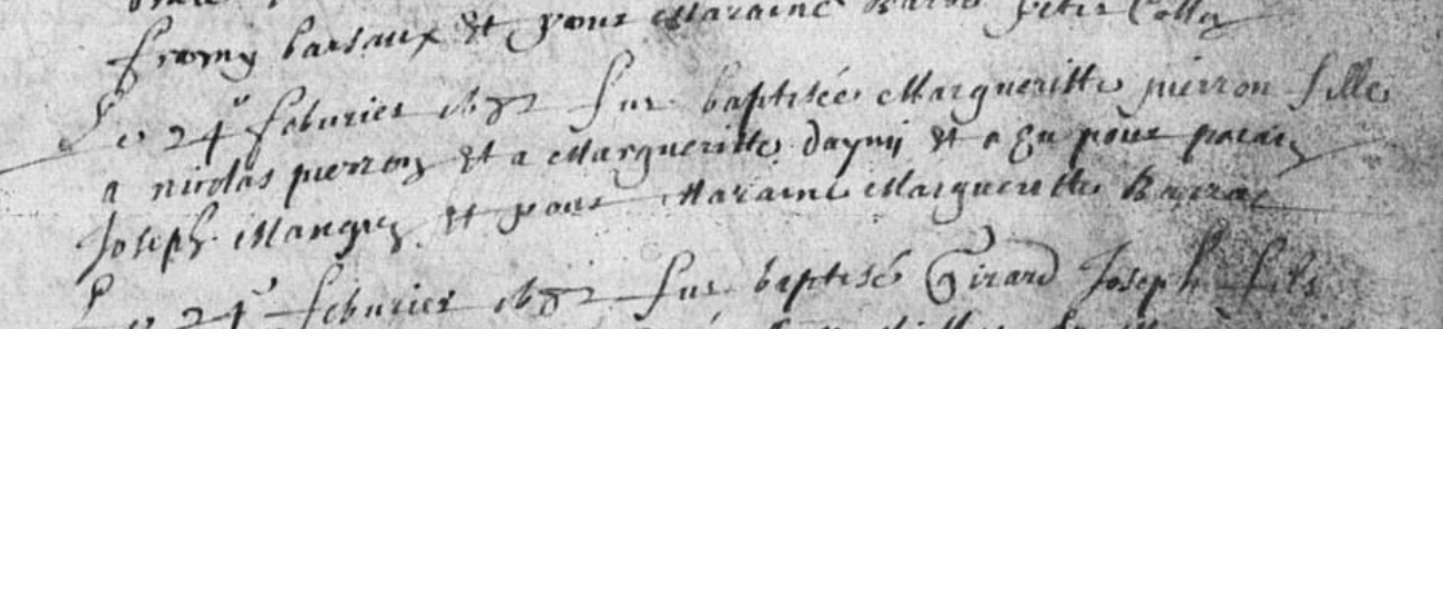 fremy barsaux Et pour Maraine
Le 24e feburier 1682 fut baptisée Margueritte pierron fille
a nicolas pierron Et a Margueritte daymy Et a Eu pour parain
Joseph Mangin Et pour Maraine Margueritte
Le 24e feburier 1682 fut baptisé Girard Joseph fils